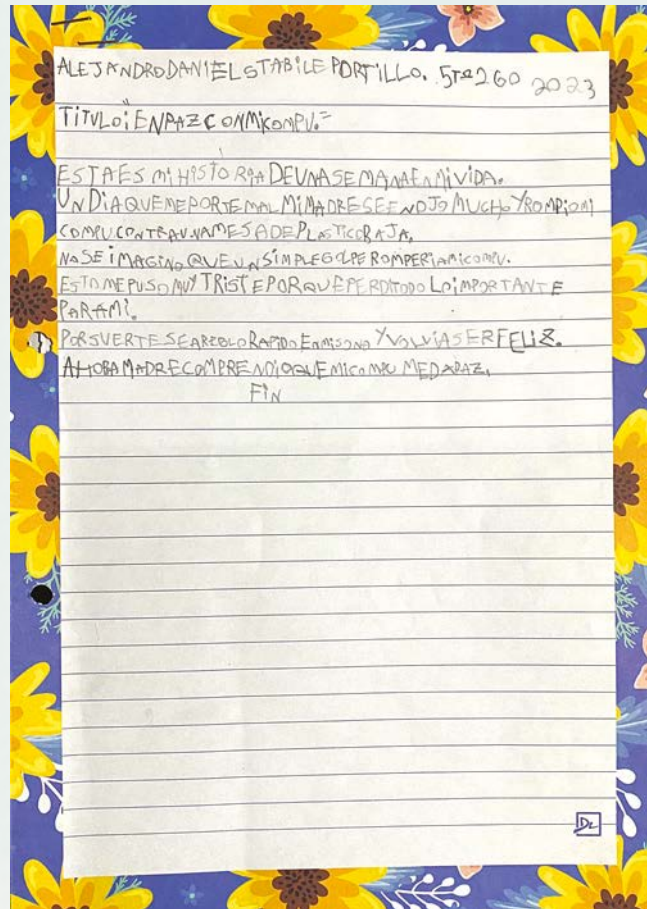 ALEJANDRO DANIEL STABILE PORTILLO. 5TO 260 2023
TITULO: EN PAZ CON MI COMPU.=
ESTA ES MI HISTORIA DE UNA SEMANA EN MI VIDA.
UN DIA QUE ME PORTE MAL MI MADRE SE ENOJO MUCHO Y ROMPIO MI
COMPU CONTRA UNA MESA DE PLASTICO BAJA,
NO SE IMAGINO QUE UN SIMPLE GOLPE ROMPERIA MI COMPU.
ESTO ME PUSO MUY TRISTE POR QUE PERDI TODO LO IMPORTANTE
PARA MI.
POR SUERTE SE AREGLO RAPIDO EN Y VOLVI A SER FELIZ.
AHORA MADRE COMPRENDIO QUE MI COMPU ME DA PAZ.
FIN